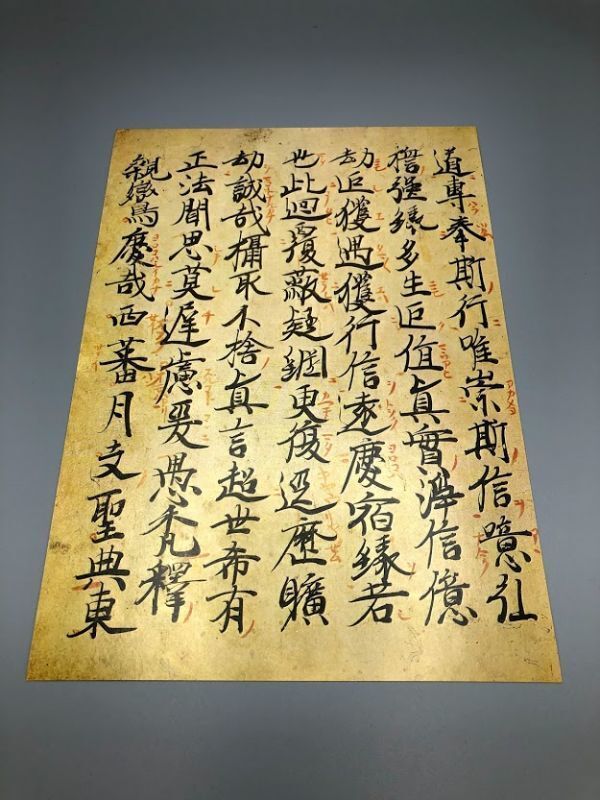 道專奉斯行唯崇斯信噫弘
誓強縁多生叵值眞實淨信億
劫叵獲遇獲行信遠慶宿縁若
也此廻覆蔽疑網更復逕歷曠
劫誠哉攝取不捨眞言超世希有
正法聞思莫遲慮爰愚禿釋
親鸞慶哉西蕃月支聖典東